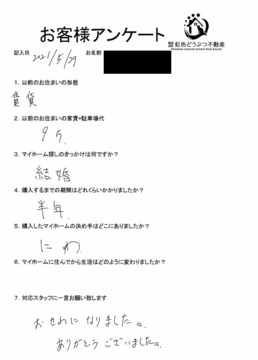 お客様アンケート
株式会社 虹色どうぶつ不動産
記入日 2021/5/29 お名前
1. 以前のお住まいの形態
賃貸
2. 以前のお住まいの家賃+駐車場代
95
3. マイホーム探しのきっかけは何ですか?
結婚
4. 購入するまでの期間はどれくらいかかりましたか?
半年
5. 購入したマイホームの決め手はどこにありましたか?
にわ
6. マイホームに住んでから生活はどのように変わりましたか?
7. 対応スタッフに一言お願い致します
おせわになりました。
ありがとうございました。